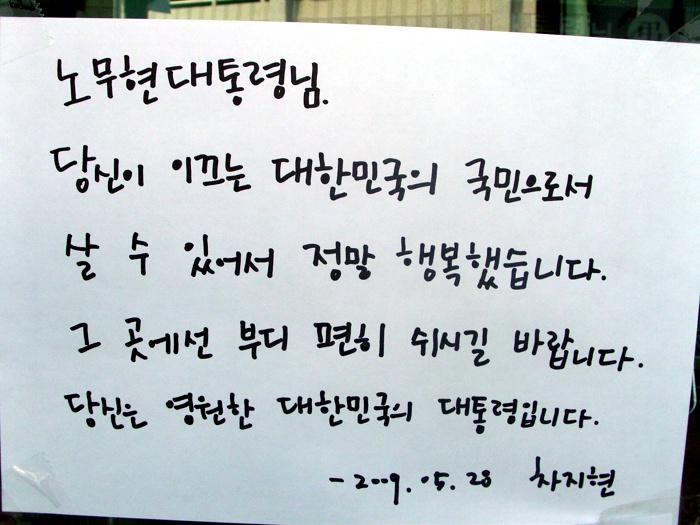 노무현대통령님.
당신이 이끄는 대한민국의 국민으로서
살 수 있어서 정말 행복했습니다.
그 곳에선 부디 편히 쉬시길 바랍니다.
당신은 영원한 대한민국의 대통령입니다.
- 2009. 05. 28 차지현